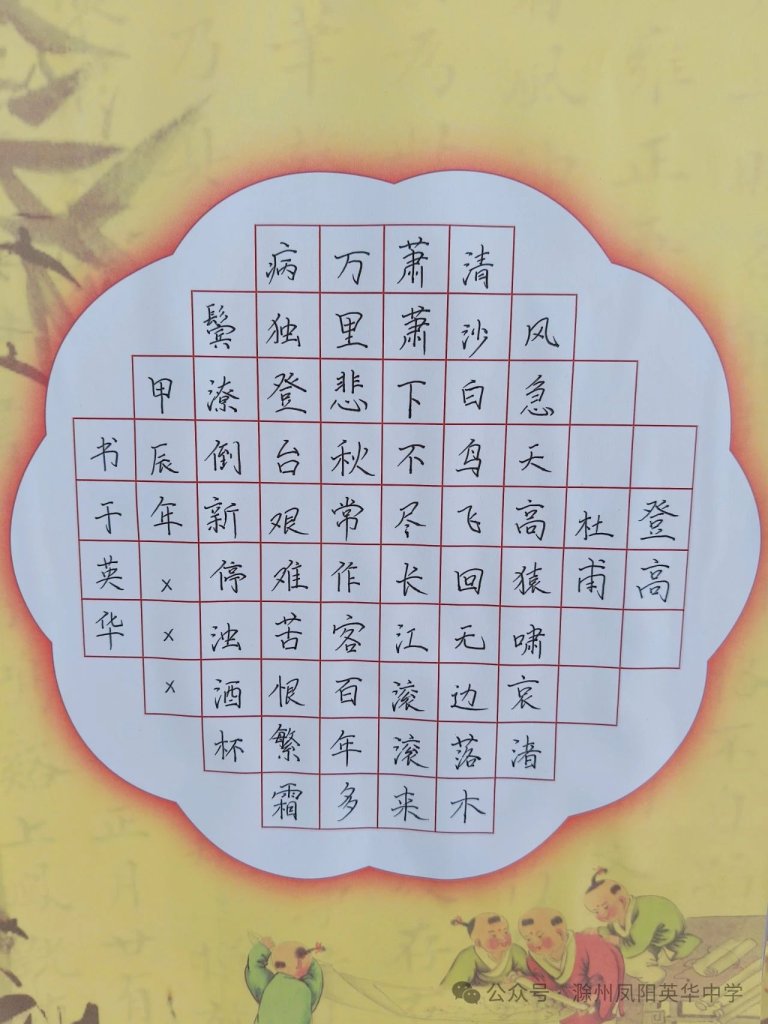 登高
杜甫
风急天高猿啸哀渚
清沙白鸟飞回无边落木
萧萧下不尽长江滚滚来
万里悲秋常作客百年多
病独登台艰难苦恨繁霜
鬓潦倒新停浊酒杯
甲辰年xxx
书于英华
公众号 · 滁州凤阳英华中学